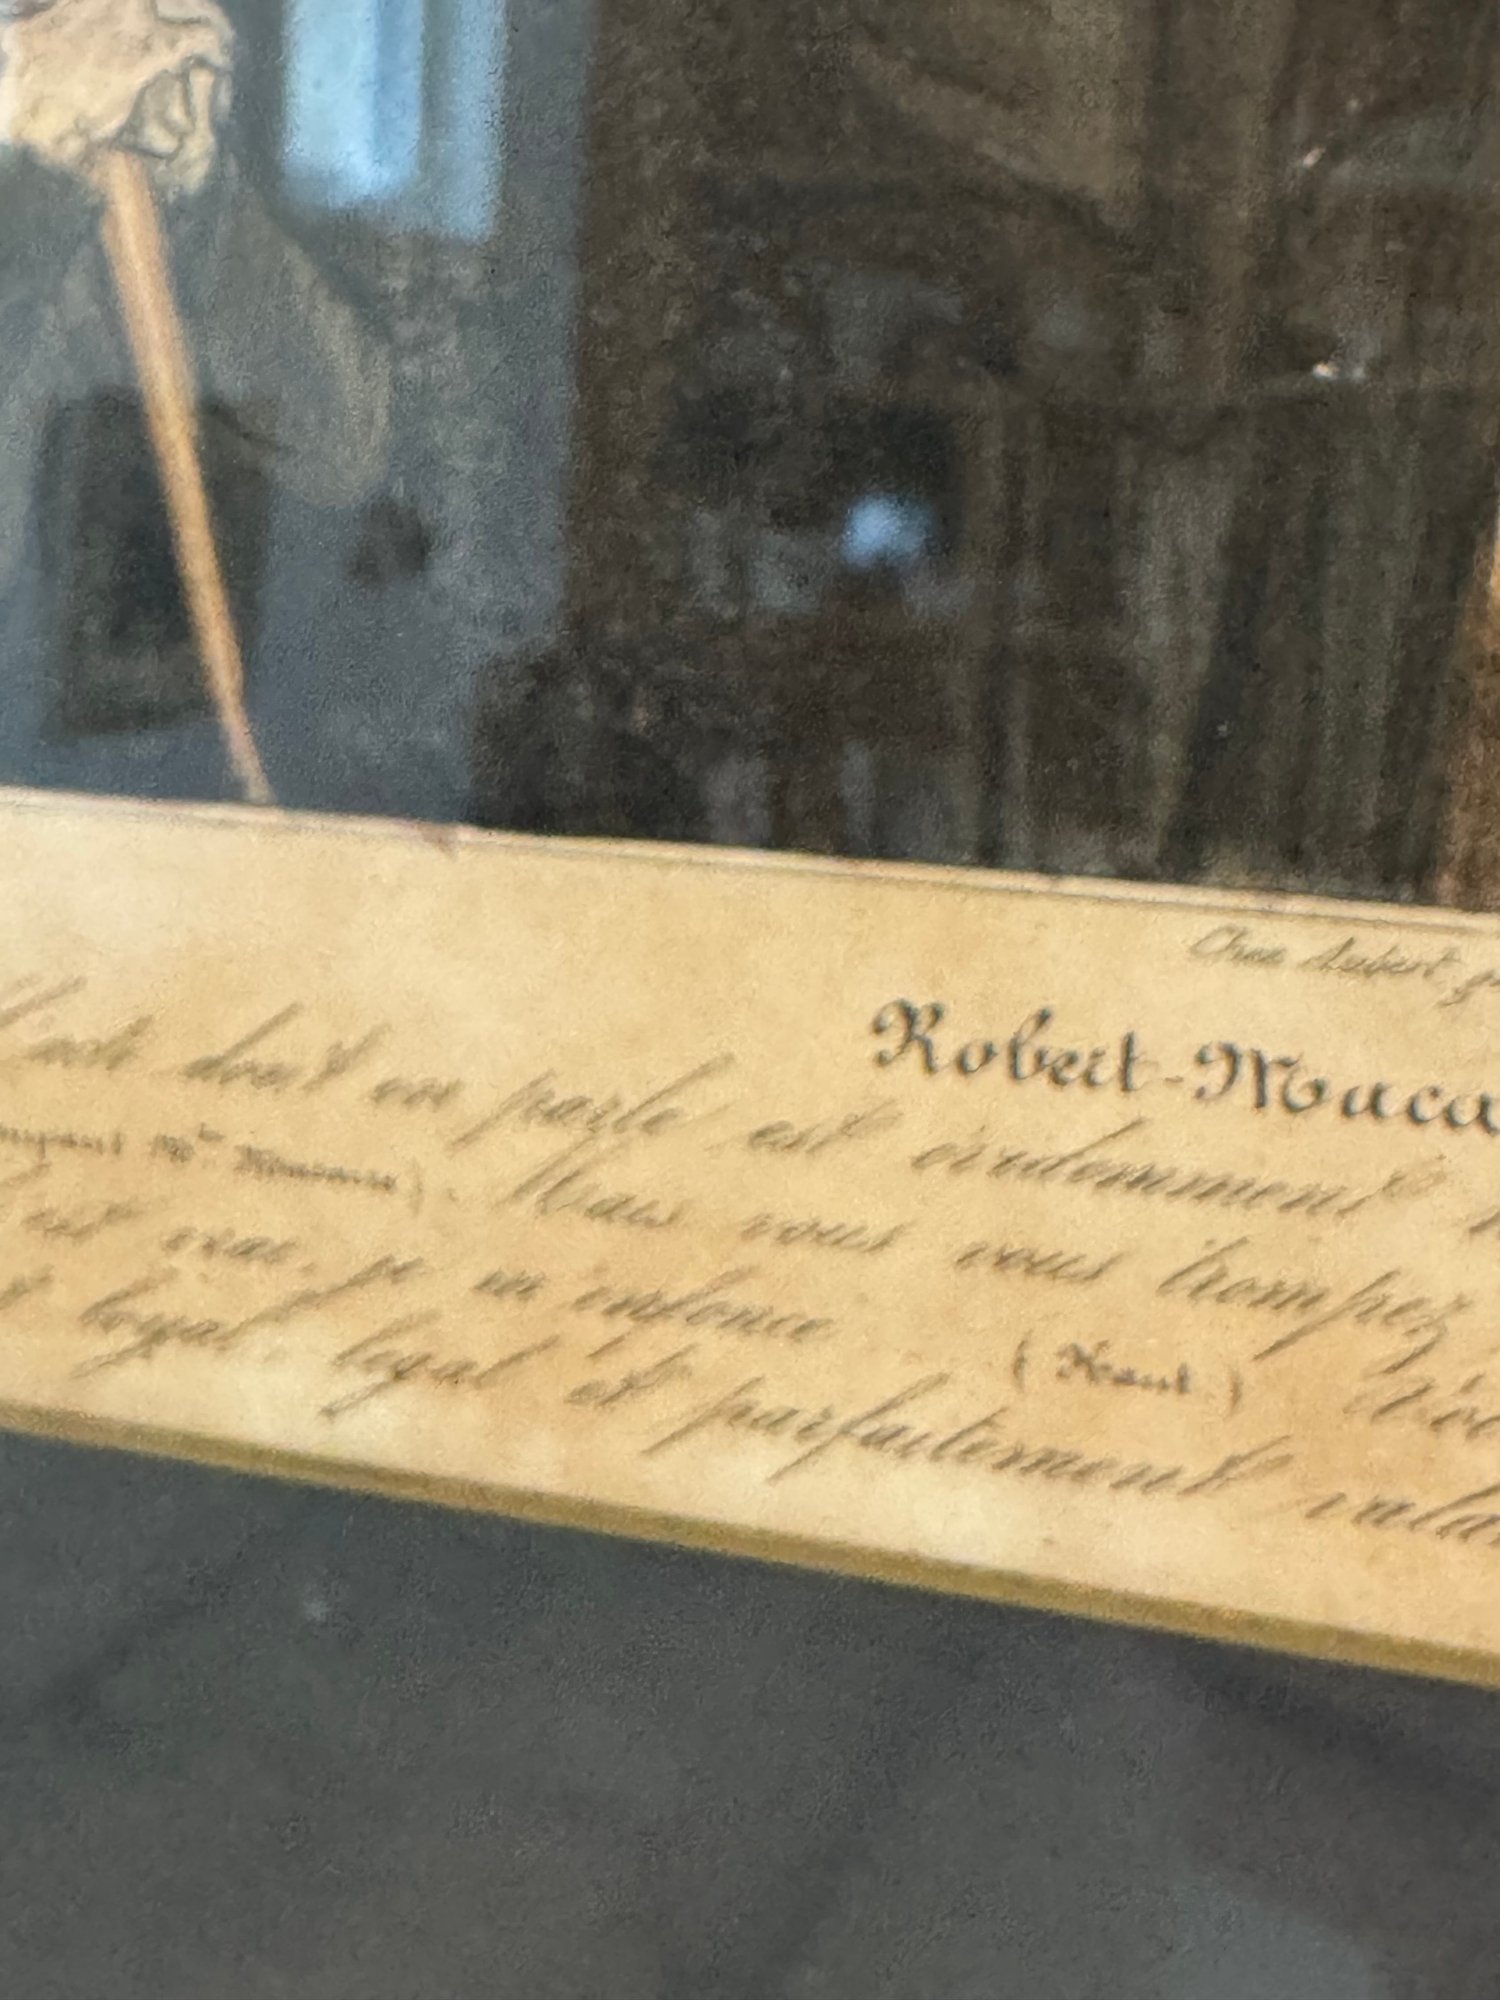 Chez Aubert
Robert-Maca
dont on parle est évidemment
Mme Macaire). Mais vous vous trompez
est vrai, je m'enfonce (Haut)
loyal, légal et parfaitement